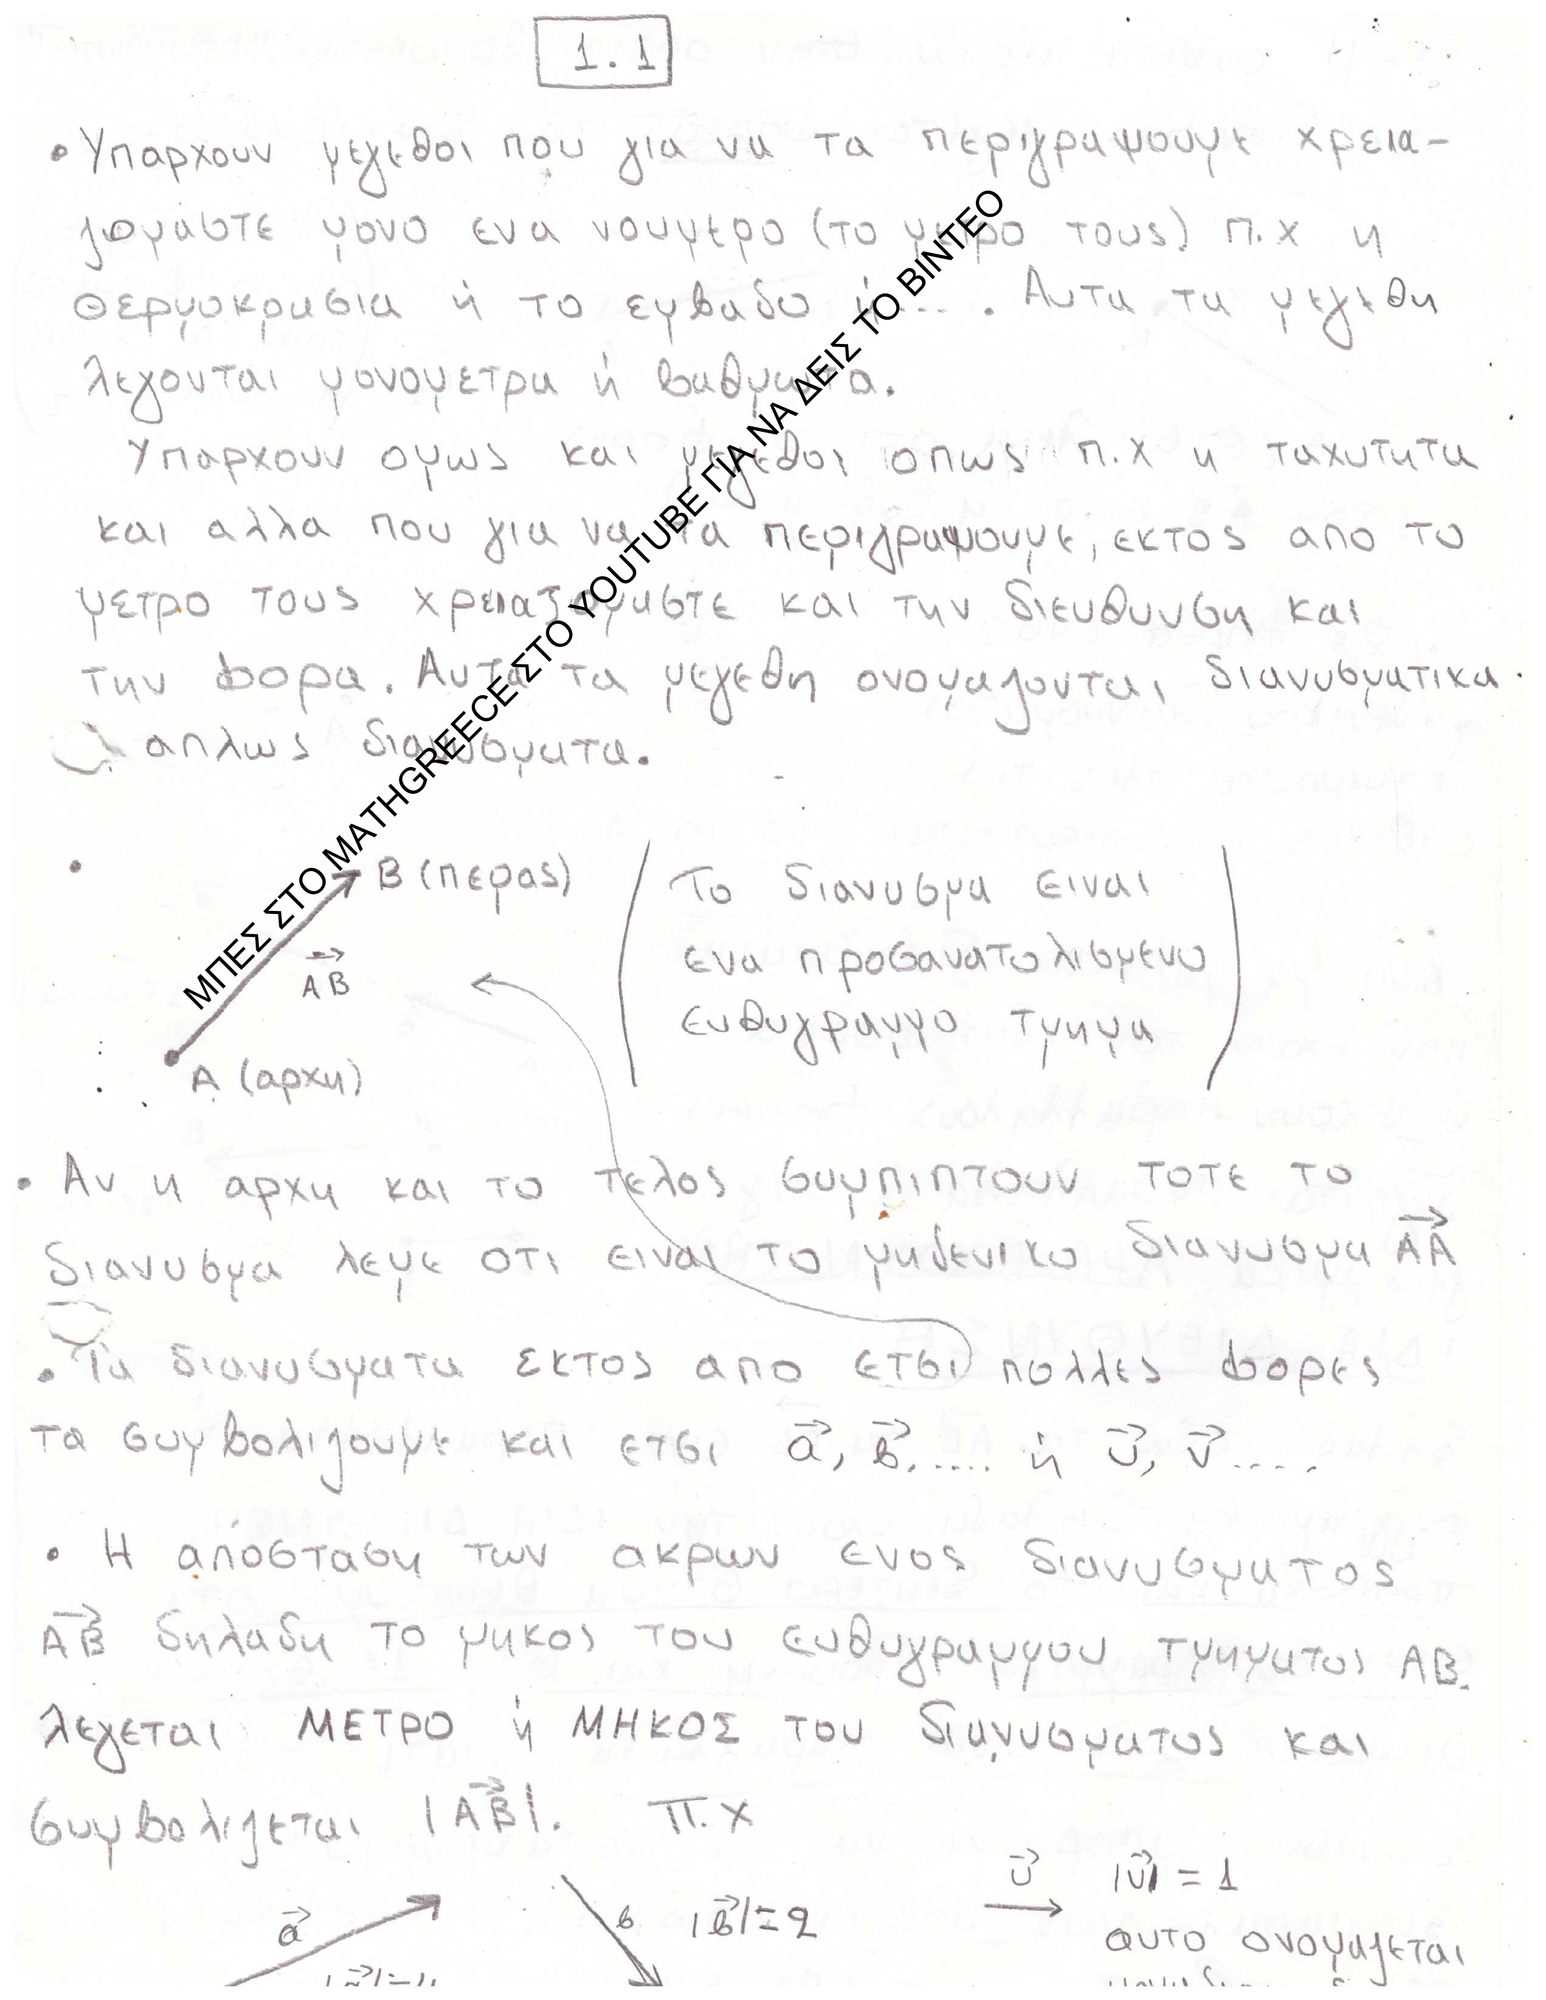 1.1
• Υπαρχουν μεγεθοι που για να τα περιγραψουμε χρεια-
ζομαστε μονο ενα νουμερο (το μετρο τους) π.χ η
θερμοκρασια ή το εμβαδο ή.... Αυτα τα μεγεθη
λεγονται μονομετρα ή βαθμωτα.
Υπαρχουν ομως και μεγεθοι οπως π.χ η ταχυτητα
και αλλα που για να τα περιγραψουμε, εκτος απο το
μετρο τους χρειαζομαστε και την διευθυνση και
την φορα. Αυτα τα μεγεθη ονομαζονται διανυσματικα
απλως διανυσματα.
ΜΠΕΣ ΣΤΟ MATHGREECE ΣΤΟ YOUTUBE ΓΙΑ ΝΑ ΔΕΙΣ ΤΟ ΒΙΝΤΕΟ
• B (περας)
AB⃗
A (αρχη)
(Το διανυσμα ειναι
ενα προσανατολισμενο
ευθυγραμμο τμημα)
• Αν η αρχη και το τελος συμπιπτουν τοτε το
διανυσμα λεμε οτι ειναι το μηδενικο διανυσμα AA⃗
• Τα διανυσματα εκτος απο ετσι πολλες φορες
τα συμβολιζουμε και ετσι a⃗, β⃗, .... ή υ⃗, v⃗ .....
• Η αποσταση των ακρων ενος διανυσματος
AB⃗ δηλαδη το μηκος του ευθυγραμμου τμηματος AB.
λεγεται ΜΕΤΡΟ ή ΜΗΚΟΣ του διανυσματος και
συμβολιζεται |AB⃗|. Π.χ
a⃗
β |β⃗|=2
υ⃗ |υ⃗| = 1
αυτο ονομαζεται